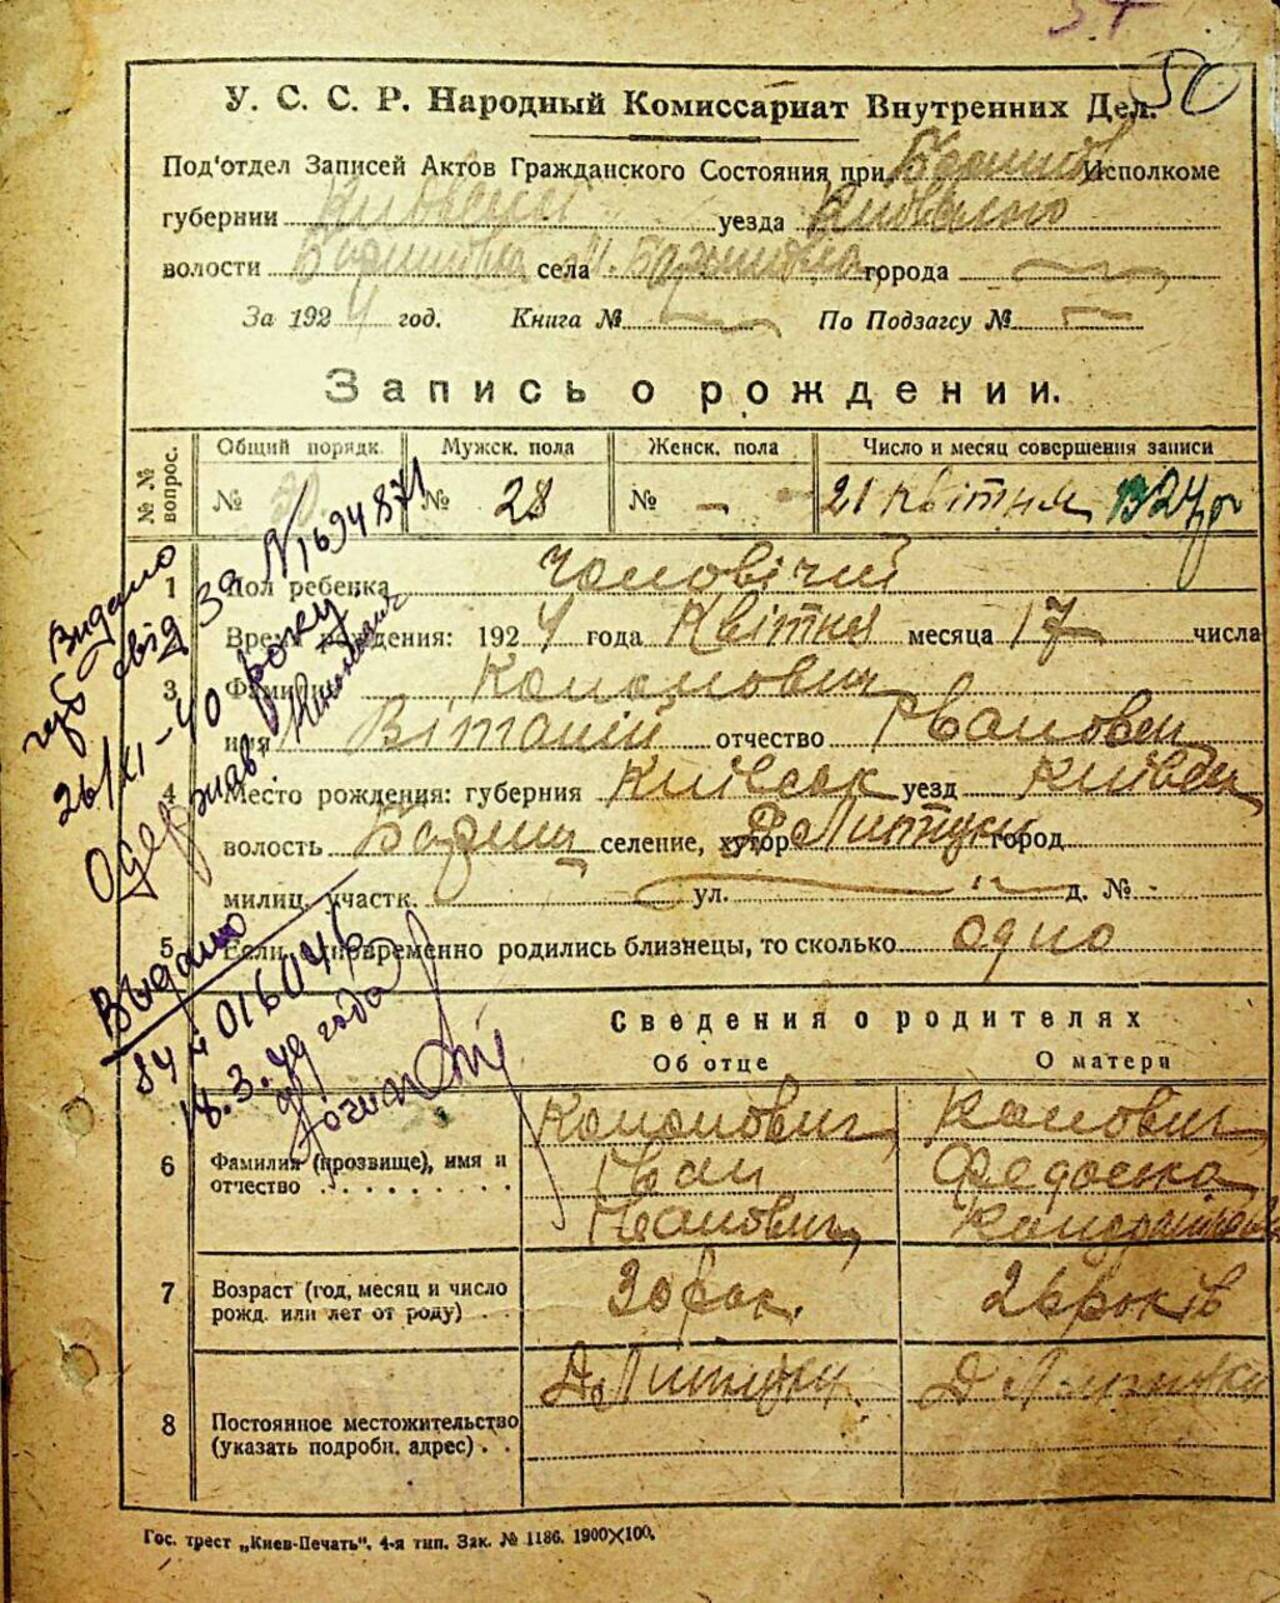 50
У. С. С. Р. Народный Комиссариат Внутренних Дел.
Под'отдел Записей Актов Гражданского Состояния при Исполкоме
губернии Київської уезда Київського
волости Баришівка села м. Баришівка города
За 1924 год. Книга № По Подзагсу №
Запись о рождении.
№ № вопрос. Общий порядк. Мужск. пола Женск. пола Число и месяц совершения записи
№ 30 № 28 № - 21 Квітня 1924 р
1 Пол ребенка Чоловічий
Время рождения: 1924 года Квітня месяца 17 числа
3 Фамилия Кононович
имя Віталій отчество Іванович
4 Место рождения: губерния Київськ уезд Київськ
волость Бариш селение, хутор Д. Литуки город
милиц. участк. ул. д. № -
5 Если одновременно родились близнецы, то сколько одно
Сведения о родителях
Об отце О матери
6 Фамилия (прозвище), имя и отчество
Кононович Кононович
Іван Федоська
Іванович
7 Возраст (год, месяц и число рожд. или лет от роду)
30 рок. 26 років
8 Постоянное местожительство (указать подробн. адрес)
Д. Литуки Д Литуки
Гос. трест „Киев-Печать". 4-я тип. Зак. № 1186. 1900×100.
Видано
свід за № 1694871
26/XI-40 року
Одержав
Выдано
0160446
18.3.49 года